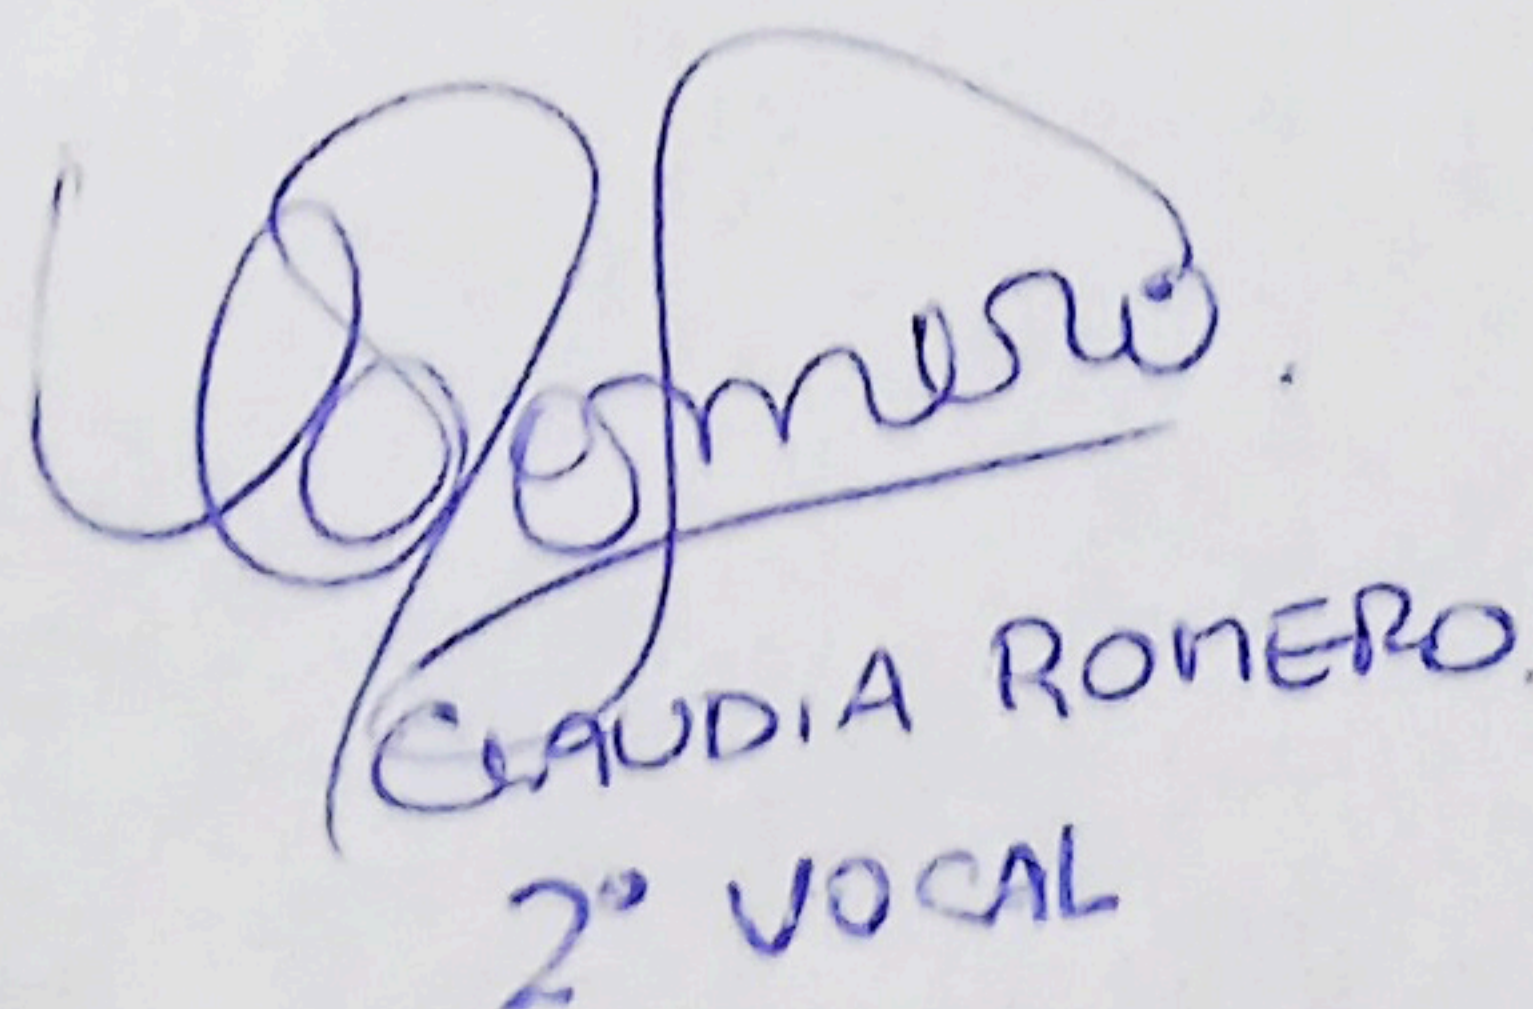 Romero.
CLAUDIA ROMERO.
2º VOCAL